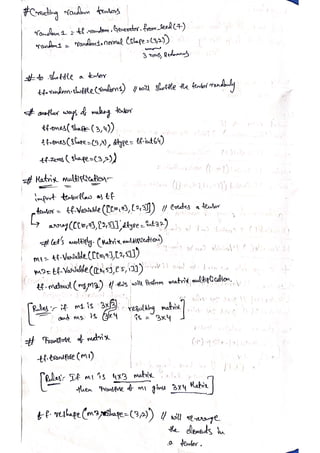 #Creating random tensors
random1 = tf.random.Generator.from_seed(7)
random1 = random1.normal (shape=(3,2))
3 rows, 2 columns
# to shuffle a tensor
tf.random.shuffle(random1) // will shuffle the tensor randomly
# another ways of making tensor
tf.ones(shape=(3,4))
tf.ones(shape=(3,4), dtype=tf.int64)
tf.zeros(shape=(3,2))
# Matrix multiplication-
import tensorflow as tf
tensor = tf.Variable([[10,9],[2,5]]) // creates a tensor
array([[10,9],[2,5]], dtype=int32)
# let's multiply. (Matrix multiplication)
m1 = tf.Variable([[10,9],[2,5]])
m2 = tf.Variable([[4,5],[5,1]])
tf.matmul(m1,m2) // this will perform matrix multiplication.
Rules:- if m1 is 3x3 resulting matrix
and m2 is 3x4 is = 3x4
# Transpose of matrix
tf.transpose(m1)
Rules:- If m1 is 4x3 matrix
then transpose of m1 gives 3x4 Matrix
tf.reshape(m2, shape=(3,2)) // will re-arrange
the elements in
a tensor.